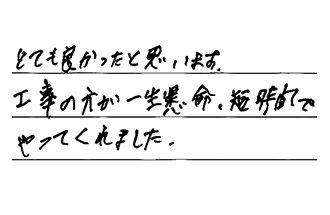 とても良かったと思います。
工事の方が一生懸命、短時間で
やってくれました。